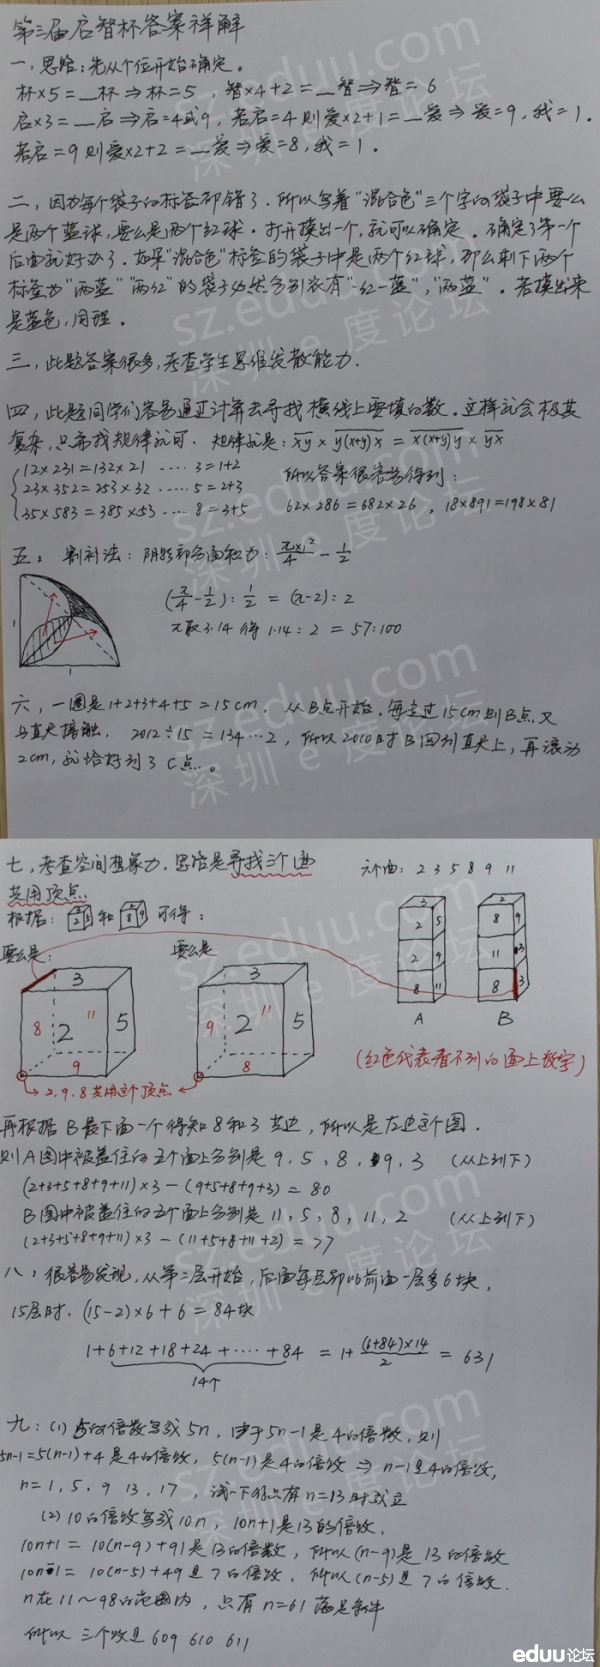 第三届启智杯答案祥解
一，思路：先从个位开始确定。
杯×5=＿杯⇒杯=5，智×4+2=＿智⇒智=6
启×3=＿启⇒启=4或9，若启=4则爱×2+1=＿爱⇒爱=9，我=1。
若启=9则爱×2+2=＿爱⇒爱=8，我=1。
二，因为每个袋子的标签都错了．所以写着"混合色"三个字的袋子中要么
是两个蓝球，要么是两个红球．打开摸出一个，就可以确定．确定了第一个
后面就好办了．如果"混合色"标签的袋子中是两个红球，那么剩下两个
标签为"两蓝""两红"的袋子必然分别放有"一红一蓝"，"两蓝"。若摸出来
是蓝色，同理。
三，此题答案很多，考查学生思维发散能力．
四，此题同学们容易通过计算去寻找横线上要填的数．这样就会极其
复杂，只寻找规律就可．规律就是：xy × y(x+y)x = x(x+y)y × yx
12×231=132×21 ····· 3=1+2
所以答案很容易得到：
23×352=253×32 ····· 5=2+3
35×583=385×53 ····· 8=3+5
62×286=682×26，18×891=198×81
五，割补法：阴影部分面积为：π×1²/4 − 1/2
(π/4−1/2)：1/2 = (π−2)：2
π取3.14得 1.14：2 = 57:100
1
1
六，一圈是1+2+3+4+5=15cm，从B点开始，每走过15cm则B点又
与直尺接触．2012÷15=134···2，所以2010时B回到直尺上，再滚动
2cm，就恰好到了C点。
七，考查空间想象力，思路是寻找三个面
共用顶点
六个面：2 3 5 8 9 11
根据：和可得：
要么是：
要么是
3
8
2
11
5
9
3
9
2
11
5
8
3
2
5
2
9
8
11
A
2
8
9
11
3
8
3
B
2，9，8共用这个顶点
(红色代表看不到的面上数字)
再根据B最下面一个得知8和3共边，所以是左边这个图．
则A图中被盖住的五个面上分别是9，5，8，9，3 (从上到下)
(2+3+5+8+9+11)×3−(9+5+8+9+3)=80
B图中被盖住的五个面上分别是11，5，8，11，2 (从上到下)
(2+3+5+8+9+11)×3−(11+5+8+11+2)=77
八：很容易发现，从第二层开始，后面每层都比前面一层多6块，
15层时．(15−2)×6+6=84块
1+6+12+18+24+·····+84 = 1+(6+84)×14/2 = 631
14个
九：(1) 5的倍数写成5n，由于5n−1是4的倍数，则
5n−1=5(n−1)+4是4的倍数，5(n−1)是4的倍数⇒n−1是4的倍数，
n=1，5，9 13，17，试一下只有n=13时成立
(2) 10的倍数写成10n，10n+1是13的倍数，
10n+1 = 10(n−9)+91是13的倍数，所以(n−9)是13的倍数
10n−1 = 10(n−5)+49是7的倍数，所以(n−5)是7的倍数．
n在11～98的范围内，只有n=61满足条件
所以三个数是609 610 611
sz.eduu.com
深圳e度论坛
sz.eduu.com
深圳e度论坛
sz.eduu.com
深圳e度论坛
eduu论坛